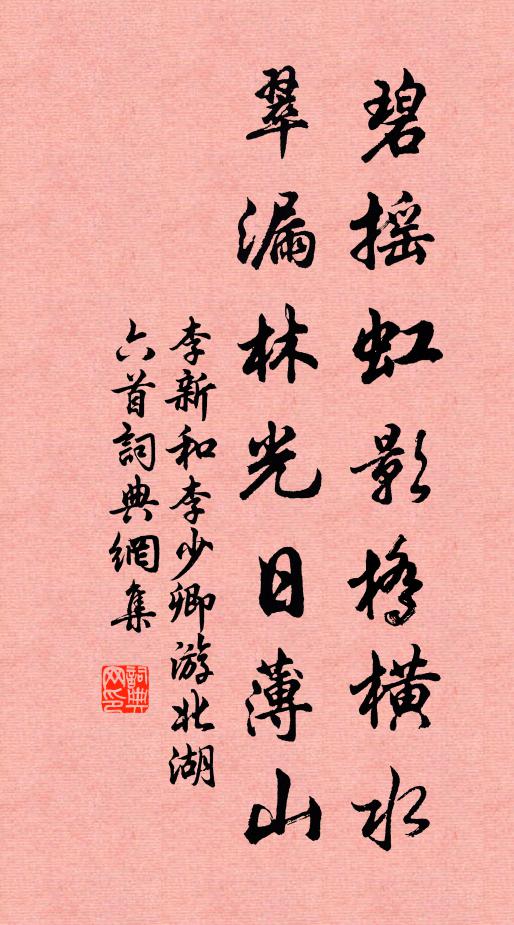 碧摇虹影桥横水
翠漏林光日薄山
李新和李少卿游北湖
六首詞典網集
詞典網印